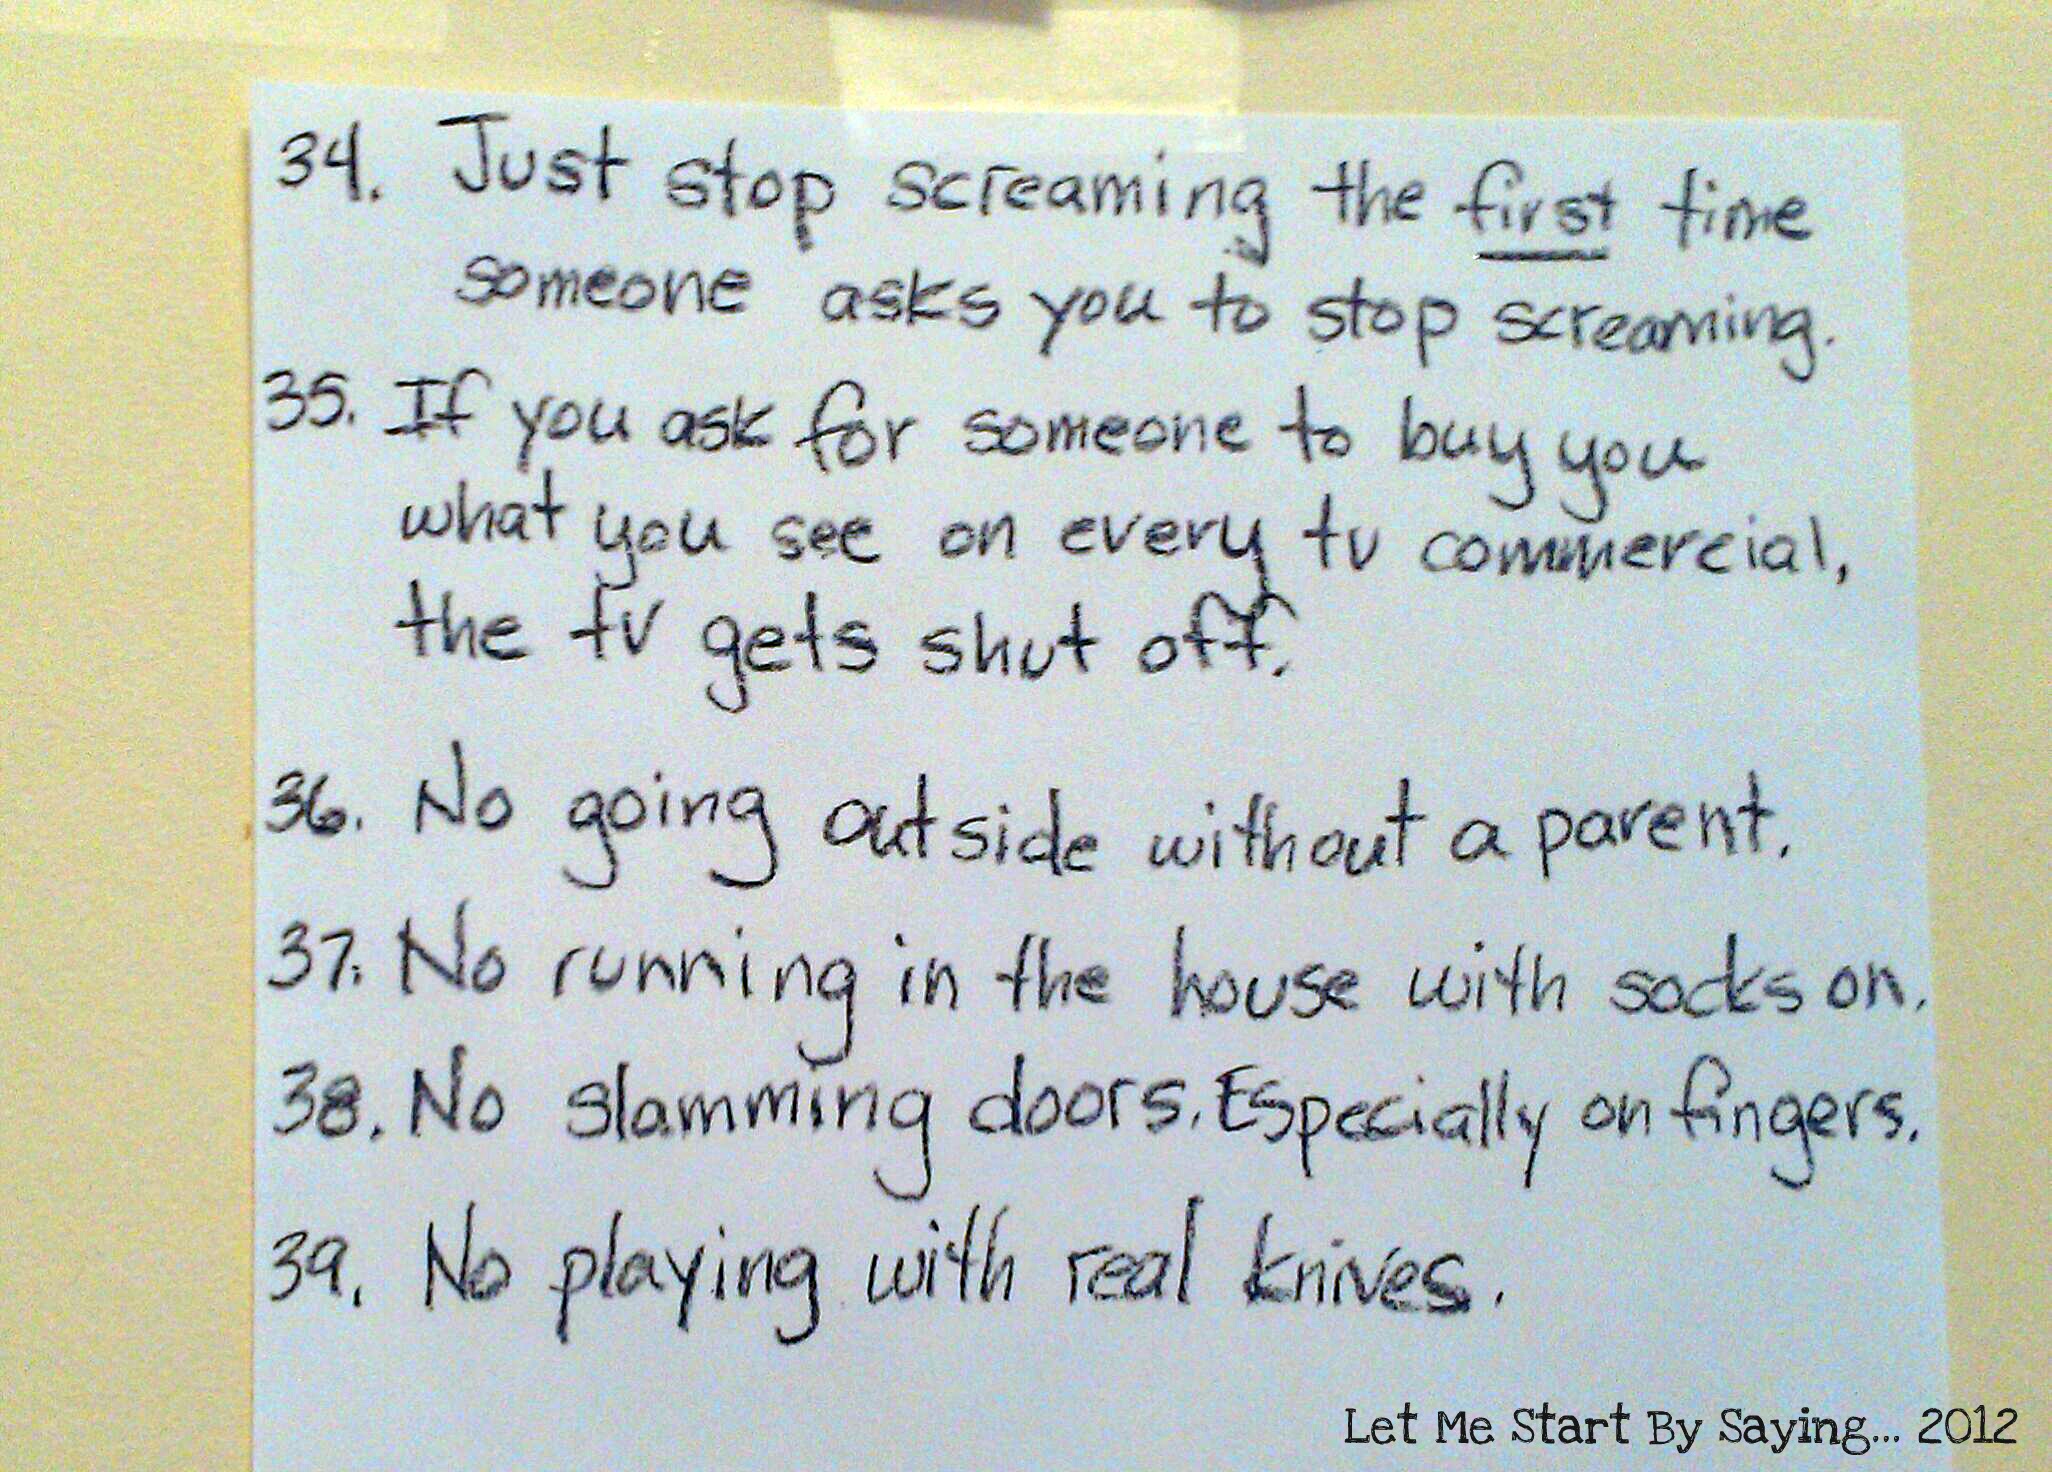 34. Just stop screaming the first time
someone asks you to stop screaming.
35. If you ask for someone to buy you
what you see on every tv commercial,
the tv gets shut off.
36. No going outside without a parent.
37. No running in the house with socks on.
38. No slamming doors. Especially on fingers.
39. No playing with real knives.
Let Me Start By Saying... 2012